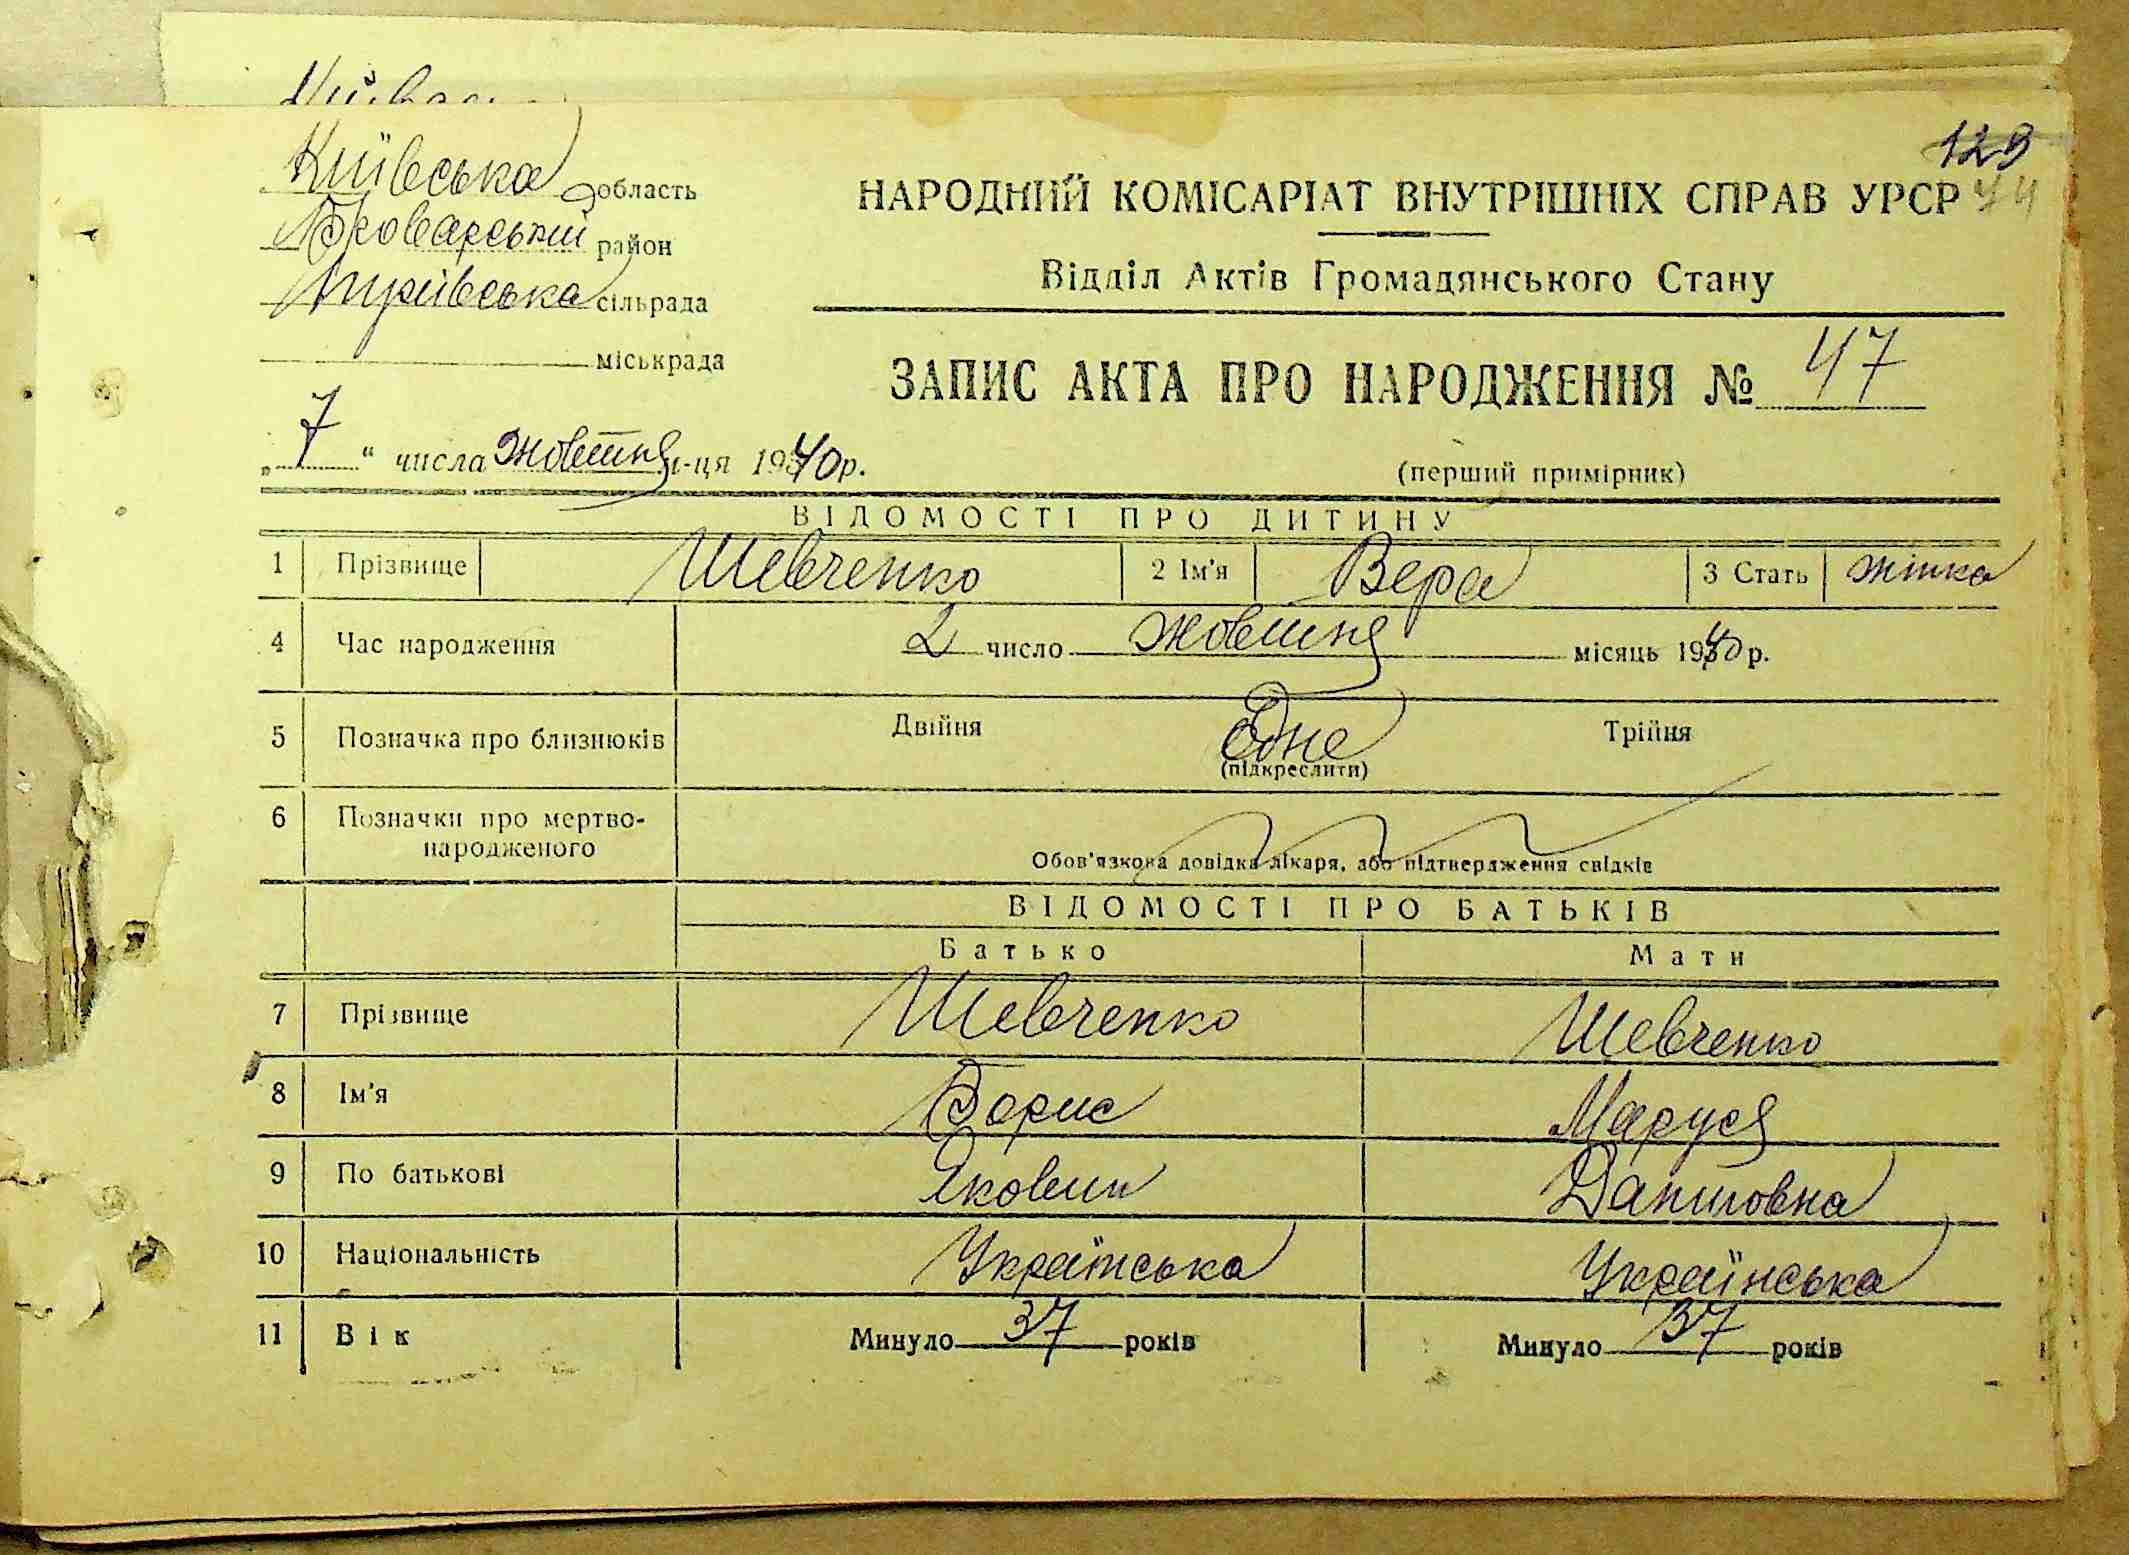 Київська область
Броварський район
сільрада
міськрада
123
НАРОДНИЙ КОМІСАРІАТ ВНУТРІШНІХ СПРАВ УРСР
Відділ Актів Громадянського Стану
ЗАПИС АКТА ПРО НАРОДЖЕННЯ № 47
„7“ числа Жовтня м-ця 1940 р.
(перший примірник)
ВІДОМОСТІ ПРО ДИТИНУ
1 Прізвище Шевченко 2 Ім'я Вера 3 Стать жінка
4 Час народження 2 число Жовтня місяць 1940 р.
5 Позначка про близнюків Двійня Одне Трійня
(підкреслити)
6 Позначки про мертво-
народженого
Обов'язкова довідка лікаря, або підтвердження свідків
ВІДОМОСТІ ПРО БАТЬКІВ
Батько Мати
7 Прізвище Шевченко Шевченко
8 Ім'я Борис Маруся
9 По батькові Даниловна
10 Національність Українська Українська
11 Вік Минуло 37 років Минуло 37 років